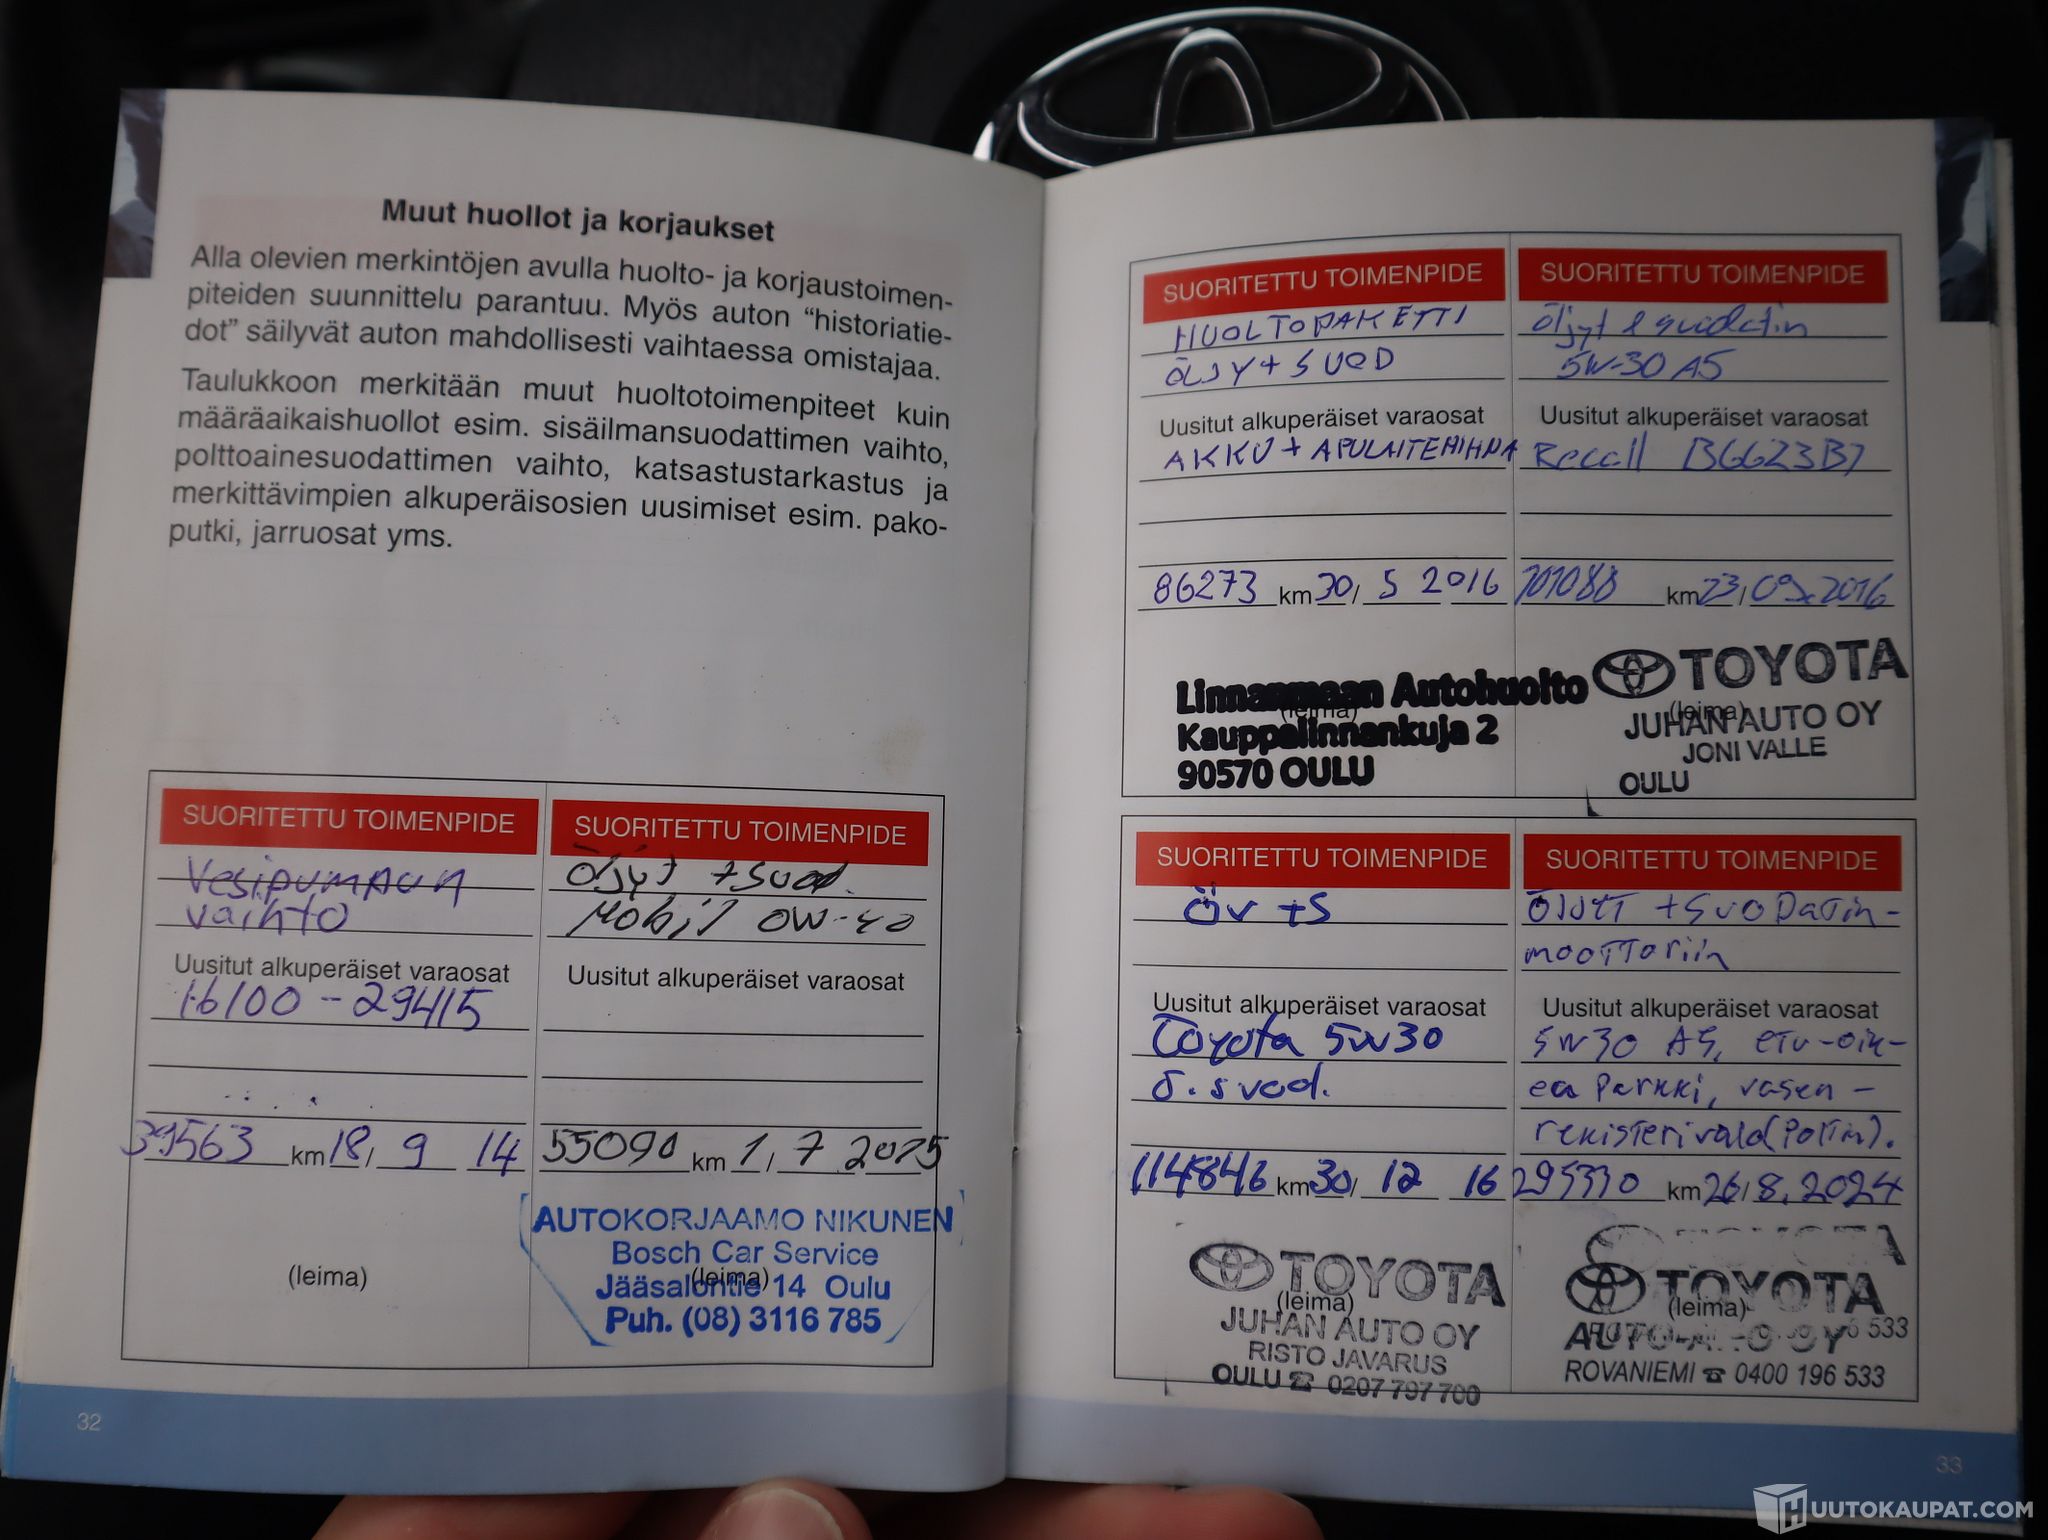 Muut huollot ja korjaukset
Alla olevien merkintöjen avulla huolto- ja korjaustoimen-
piteiden suunnittelu parantuu. Myös auton “historiatie-
dot” säilyvät auton mahdollisesti vaihtaessa omistajaa.
Taulukkoon merkitään muut huoltotoimenpiteet kuin
määräaikaishuollot esim. sisäilmansuodattimen vaihto,
polttoainesuodattimen vaihto, katsastustarkastus ja
merkittävimpien alkuperäisosien uusimiset esim. pako-
putki, jarruosat yms.
SUORITETTU TOIMENPIDE
Vesipumpun
vaihto
Uusitut alkuperäiset varaosat
16100-29415
39563 km 18/ 9 14
(leima)
SUORITETTU TOIMENPIDE
Öljyt + suod.
Mobil 0W-40
Uusitut alkuperäiset varaosat
55090 km 1/ 7 2015
(leima)
AUTOKORJAAMO NIKUNEN
Bosch Car Service
Jääsalontie 14 Oulu
Puh. (08) 3116 785
32
SUORITETTU TOIMENPIDE
HUOLTOPAKETTI
ÖLJY + SUOD
Uusitut alkuperäiset varaosat
AKKU + APULAITEHIHNA
86273 km 30/ 5 2016
(leima)
Linnanmaan Autohuolto
Kauppalinnankuja 2
90570 OULU
SUORITETTU TOIMENPIDE
Öljyt & suodatin
5W-30 A5
Uusitut alkuperäiset varaosat
Recall
101088 km 23/ 09.2016
(leima)
TOYOTA
JUHAN AUTO OY
JONI VALLE
OULU
SUORITETTU TOIMENPIDE
ÖV + S
Uusitut alkuperäiset varaosat
Toyota 5W30
ö.suod.
114846 km 30/ 12 16
(leima)
TOYOTA
JUHAN AUTO OY
RISTO JAVARUS
OULU ☎ 0207 797 700
SUORITETTU TOIMENPIDE
ÖLJYT + SUODATIN-
moottoriin
Uusitut alkuperäiset varaosat
5W30 A5, etu-oik-
ea parkki, vasen-
rekisterivalo (polttim).
295330 km 26/ 8.2024
(leima)
TOYOTA
ROVANIEMI ☎ 0400 196 533
33
HUUTOKAUPAT.COM